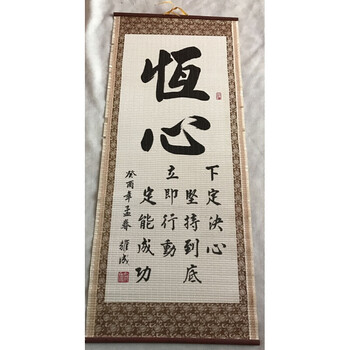 恆心
下定決心
堅持到底
立即行動
定能成功
癸酉年孟春